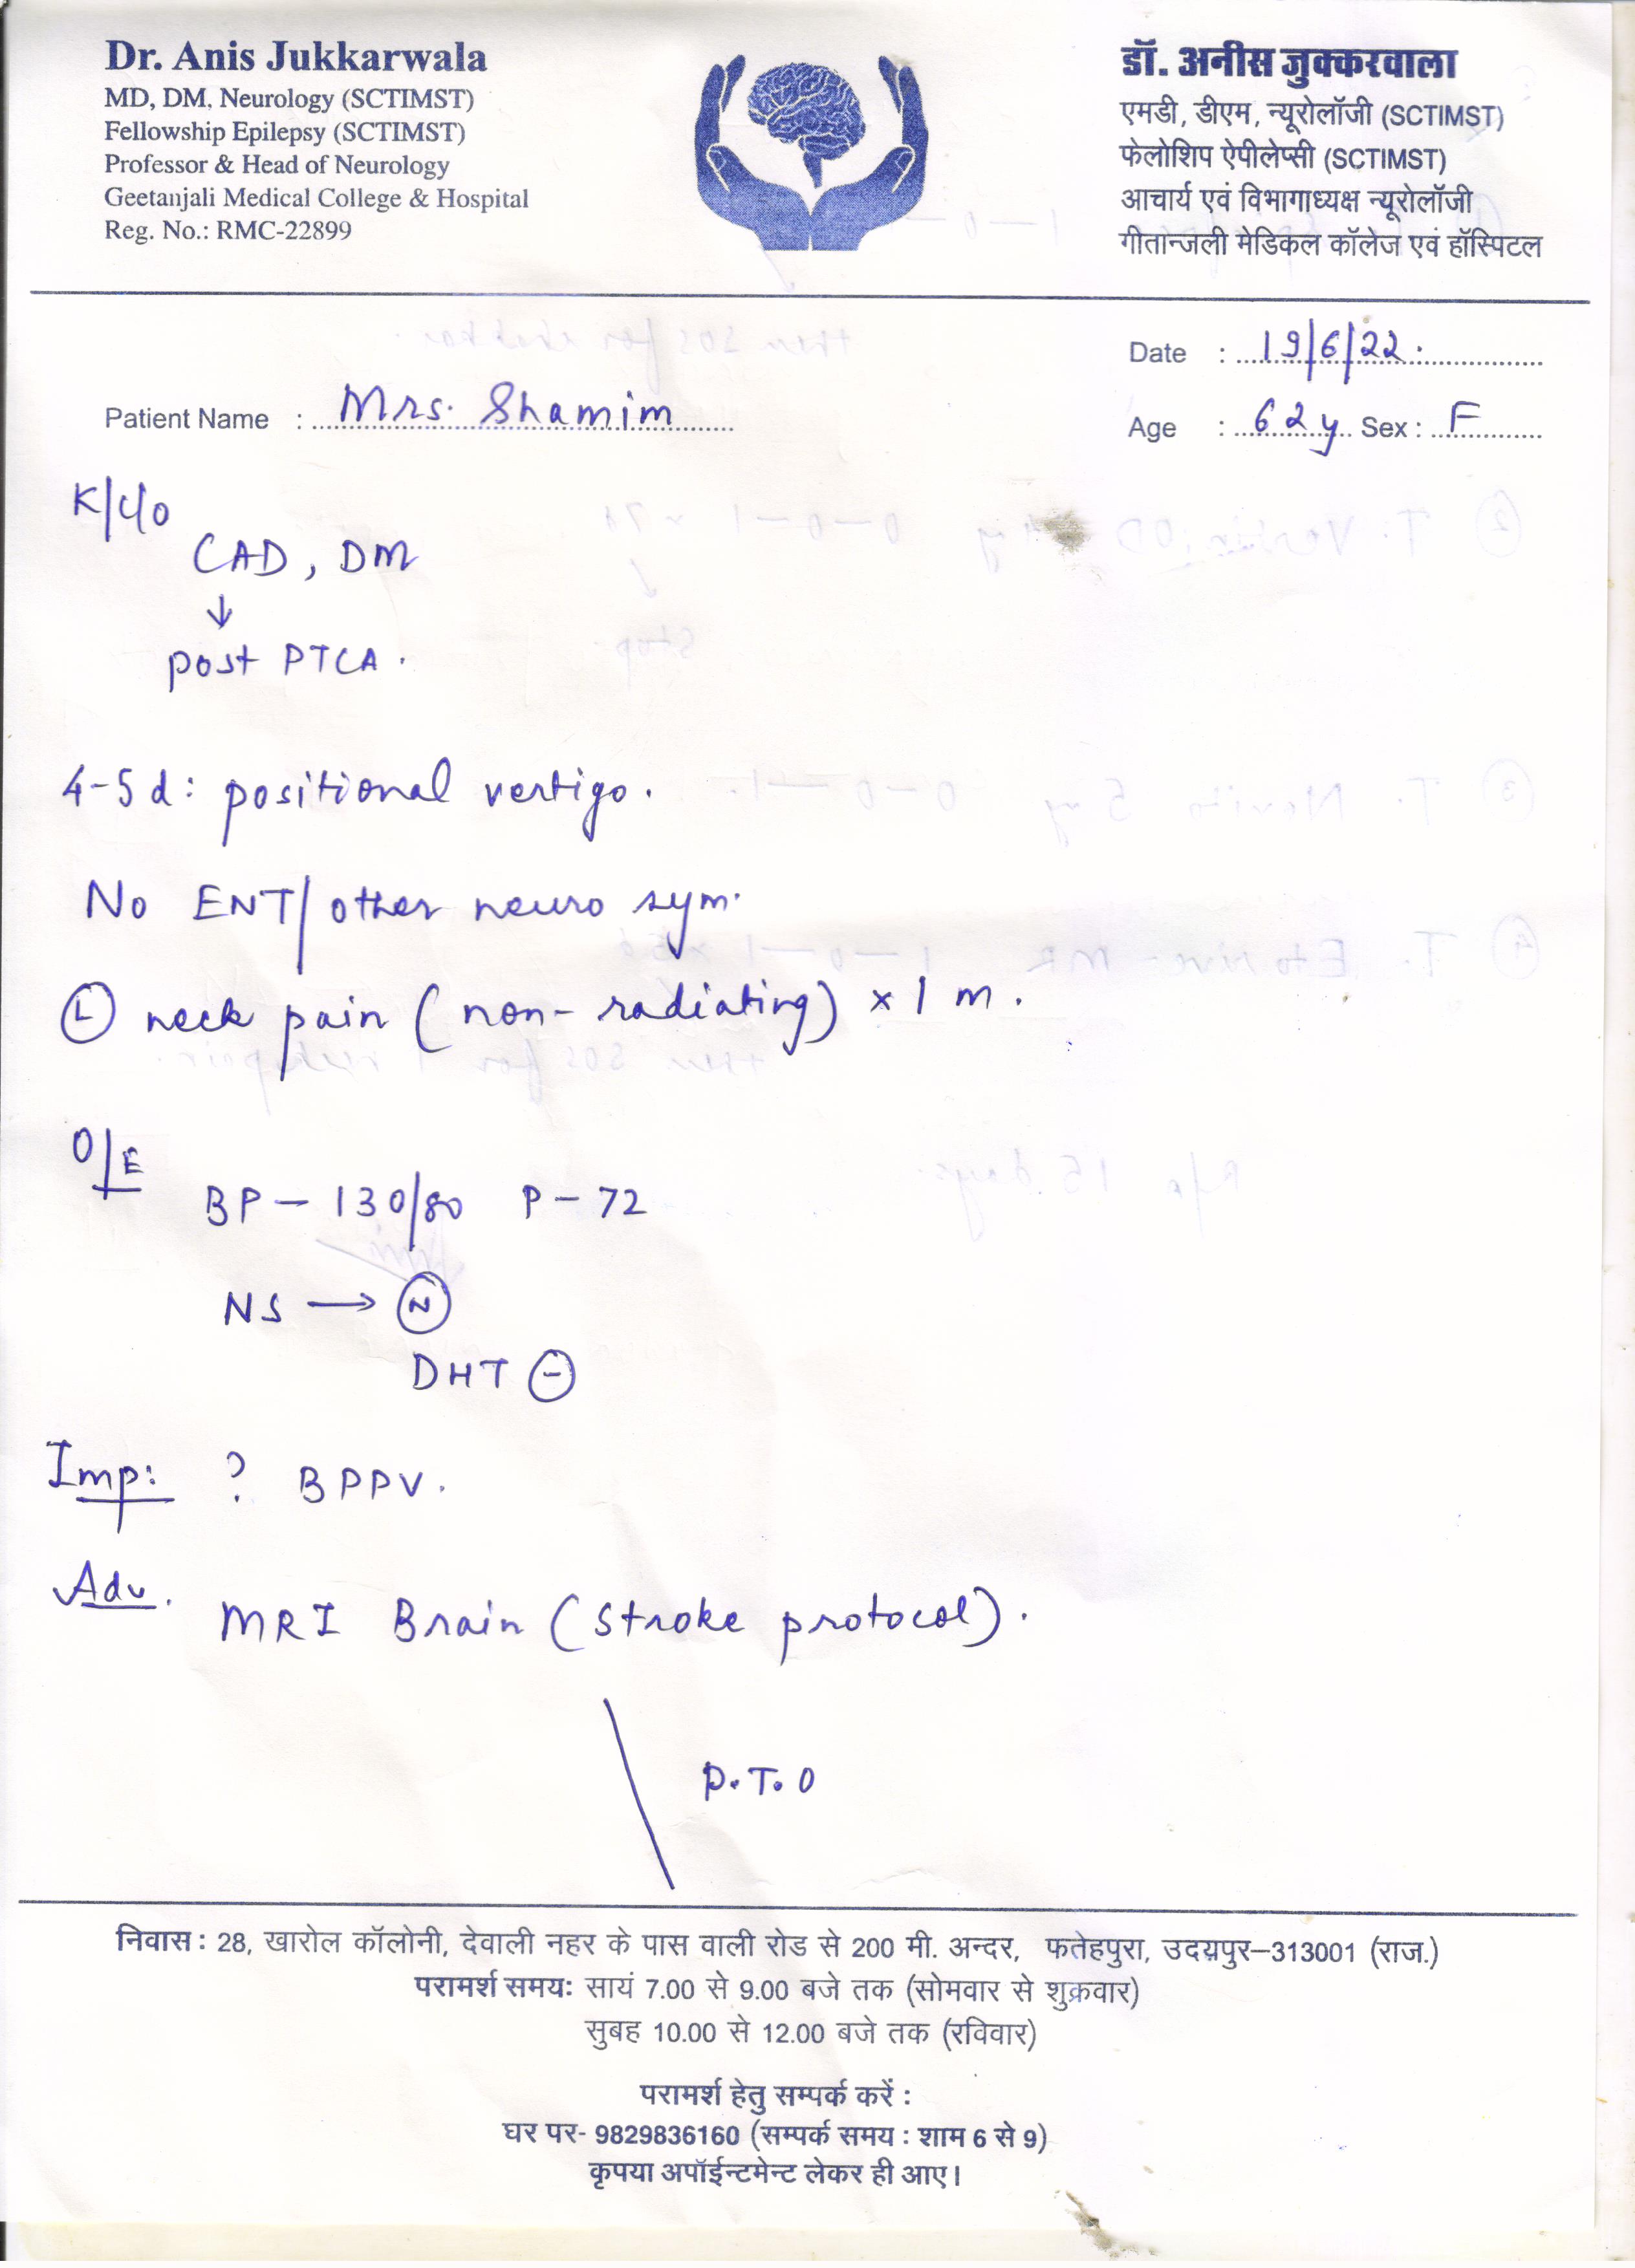 Dr. Anis Jukkarwala
MD, DM, Neurology (SCTIMST)
Fellowship Epilepsy (SCTIMST)
Professor & Head of Neurology
Geetanjali Medical College & Hospital
Reg. No.: RMC-22899
डॉ. अनीस जुक्करवाला
एमडी, डीएम, न्यूरोलॉजी (SCTIMST)
फेलोशिप ऐपीलेप्सी (SCTIMST)
आचार्य एवं विभागाध्यक्ष न्यूरोलॉजी
गीतान्जली मेडिकल कॉलेज एवं हॉस्पिटल
Date : 19/6/22.
Patient Name : Mrs. Shamim
Age : 62y Sex : F
K/c/o
CAD, DM
↓
post PTCA.
4-5d: positional vertigo.
No ENT/other neuro sym.
Ⓛ neck pain (non-radiating) x 1 m.
O/E
BP - 130/80 P - 72
NS → Ⓝ
DHT ⊖
Imp: ? BPPV.
Adv.
MRI Brain (Stroke protocol).
P.T.O
निवास : 28, खारोल कॉलोनी, देवाली नहर के पास वाली रोड से 200 मी. अन्दर, फतेहपुरा, उदयपुर–313001 (राज.)
परामर्श समयः सायं 7.00 से 9.00 बजे तक (सोमवार से शुक्रवार)
सुबह 10.00 से 12.00 बजे तक (रविवार)
परामर्श हेतु सम्पर्क करें :
घर पर- 9829836160 (सम्पर्क समय : शाम 6 से 9)
कृपया अपॉईन्टमेन्ट लेकर ही आए।